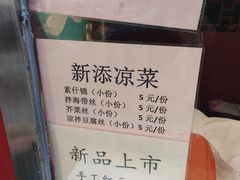 新添凉菜
素什锦（小份） 5 元/份
拌海带丝（小份） 5 元/份
芥菜丝（小份） 5 元/份
凉拌豆腐丝（小份） 5 元/份
新品上市
手工